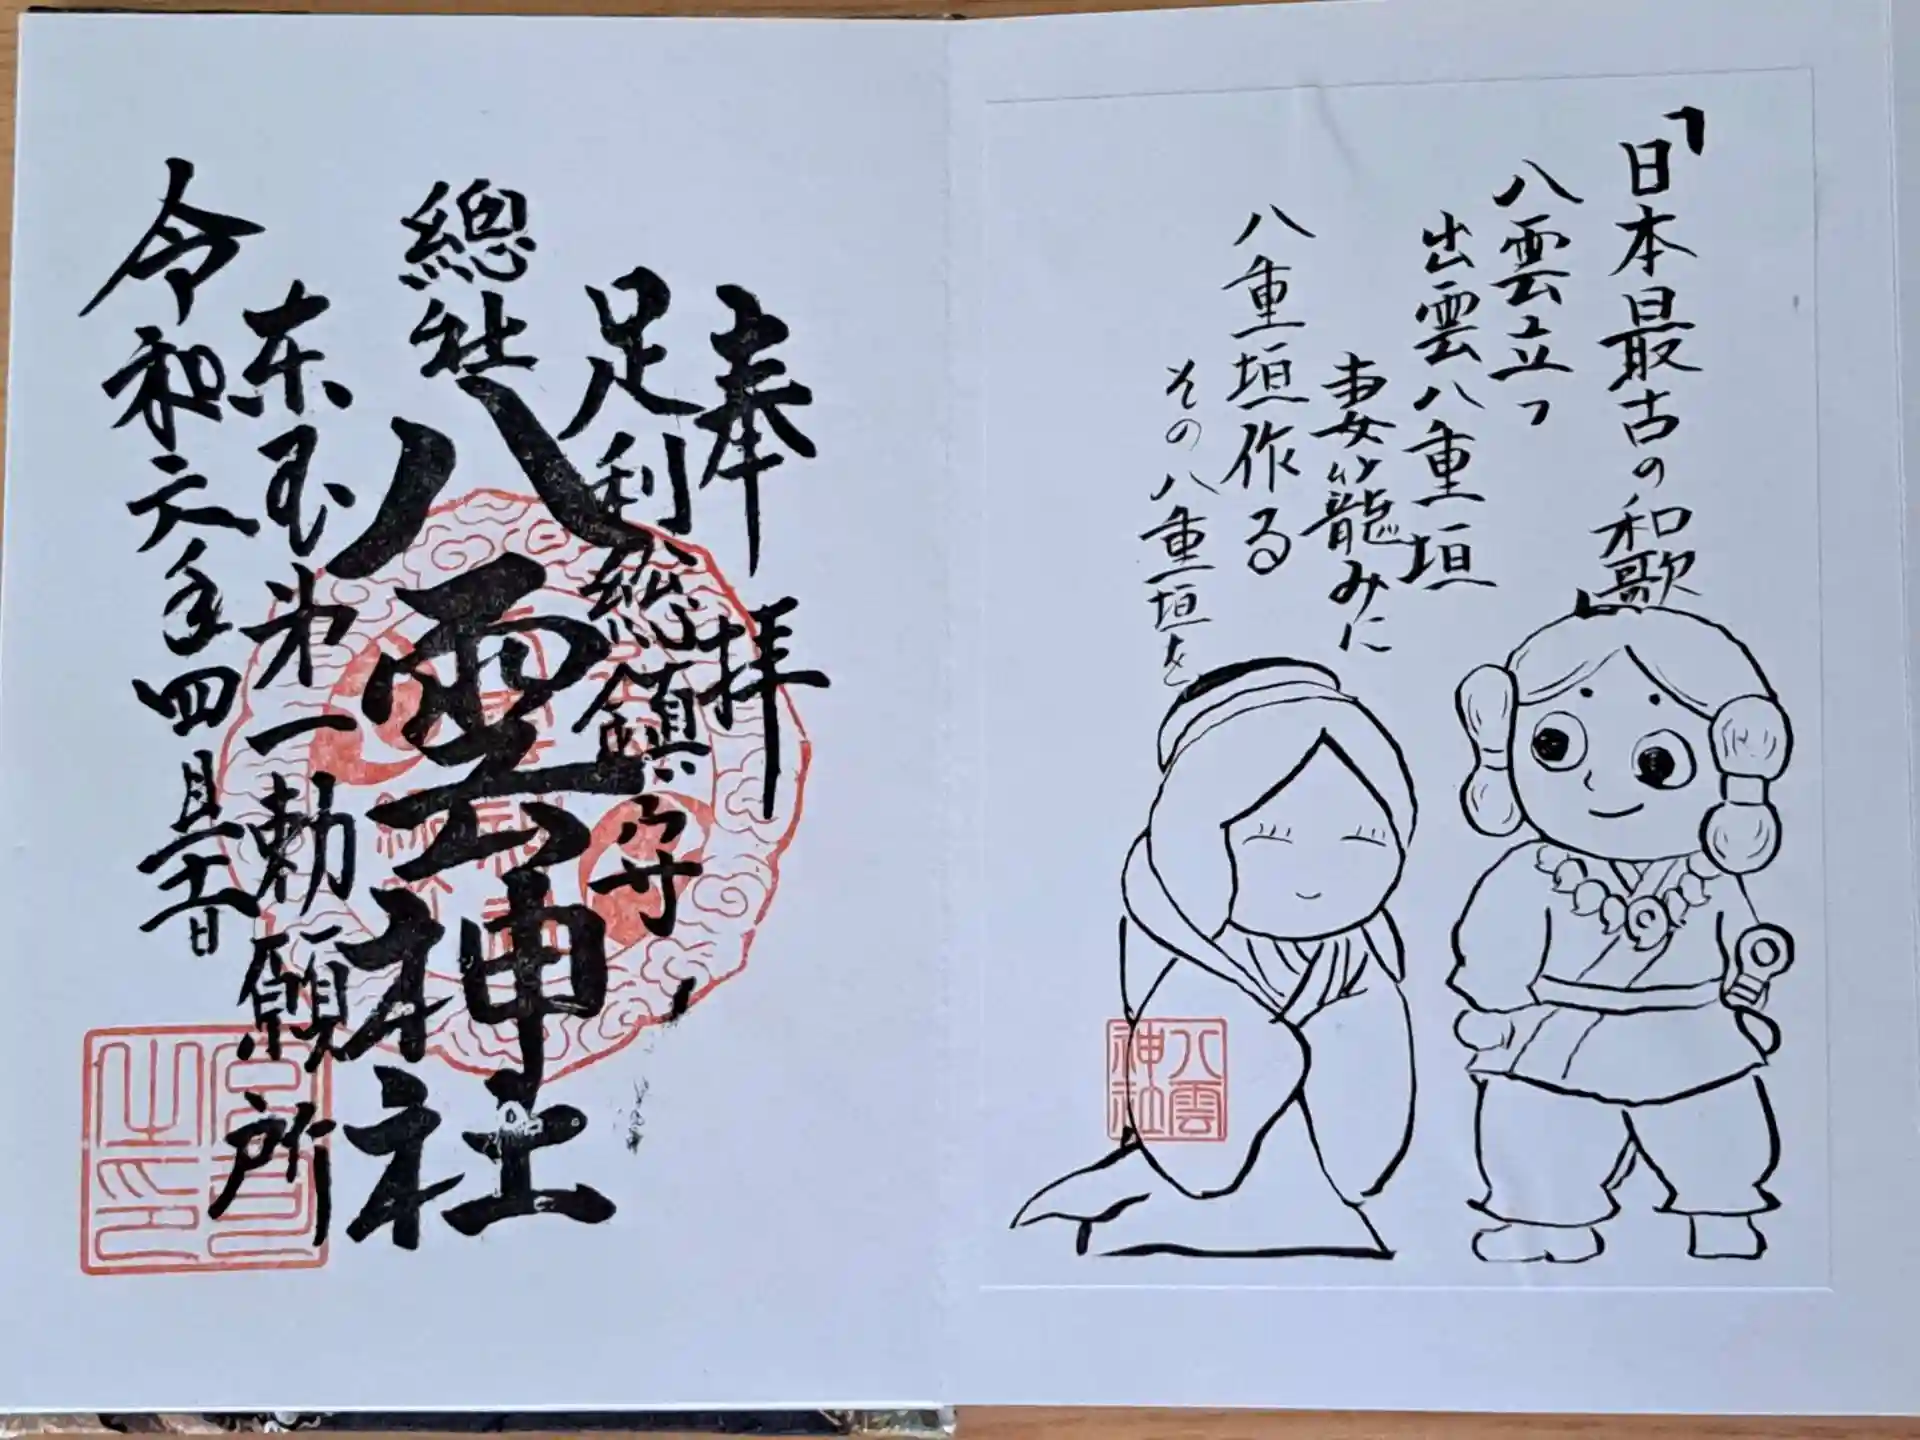 「日本最古の和歌
八雲立つ
出雲八重垣
妻籠みに
八重垣作る
その八重垣を
八雲神社
奉拝
足利総鎮守
總社
八雲神社
東国第一勅願所
令和六年四月
宮司之印